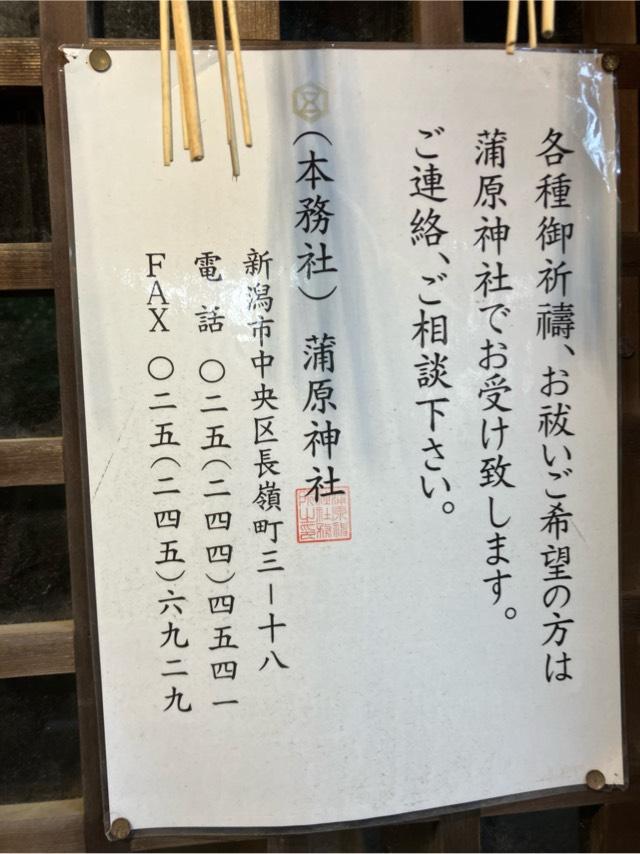 各種御祈禱、お祓いご希望の方は
蒲原神社でお受け致します。
ご連絡、ご相談下さい。
（本務社）　蒲原神社
新潟市中央区長嶺町三－十八
電話　〇二五（二四四）四五四一
ＦＡＸ　〇二五（二四五）六九二九